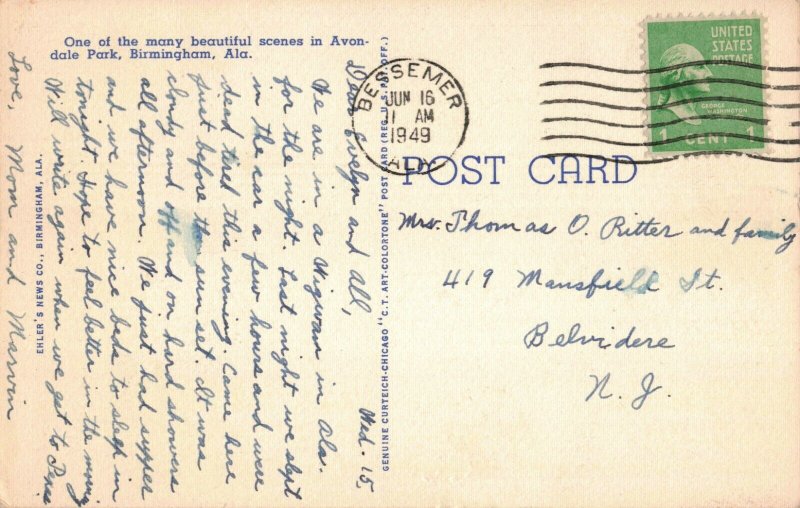 One of the many beautiful scenes in Avon-
dale Park, Birmingham, Ala.
Wed. 15,
Dear Evelyn and all,
We are in a Wigwam in Ala.
for the night. Last night we slept
in the car a few hours and were
dead tired this evening. Came here
just before the sun set. It was
cloudy and off and on hard showers
all afternoon. We just had supper
and we have nice beds to sleep in
tonight. Hope to feel better in the morning
Will write again when we get to
Love, Mom and Marvin
EHLER'S NEWS CO., BIRMINGHAM, ALA.
GENUINE CURTEICH-CHICAGO "C.T. ART-COLORTONE" POST CARD (REG. U.S. PAT. OFF.)
BESSEMER
JUN 16
11 AM
1949
ALA.
UNITED
STATES
POSTAGE
GEORGE
WASHINGTON
1 CENT 1
POST CARD
Mrs. Thomas O. Ritter and family
419 Mansfield St.
Belvidere
N. J.